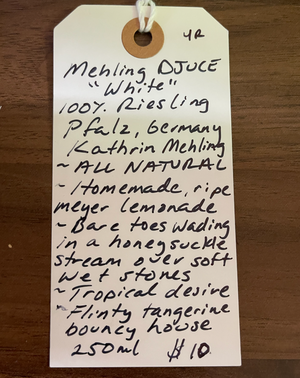 4R
Mehling DJUCE
"White"
100% Riesling
Pfalz, Germany
Kathrin Mehling
~ ALL NATURAL
~ Homemade, ripe
meyer lemonade
~ Bare toes wading
in a honeysuckle
stream over soft
wet stones
~ Tropical desire
~ Flinty tangerine
bouncy house
250ml $10